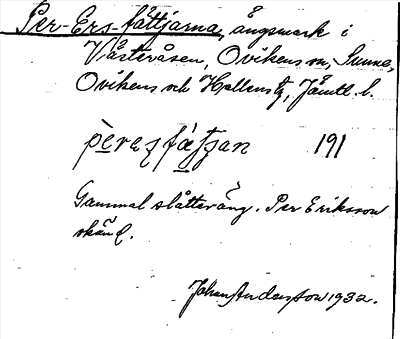 Per-Ers-fättjarna, ängsmark i
Västeråsen, Ovikens sn, Sunne,
Ovikens och Hallens tg, Jämtl. l.
191
Gammal slåtteräng. Per Eriksson
okänd.
Johan Andersson 1932.